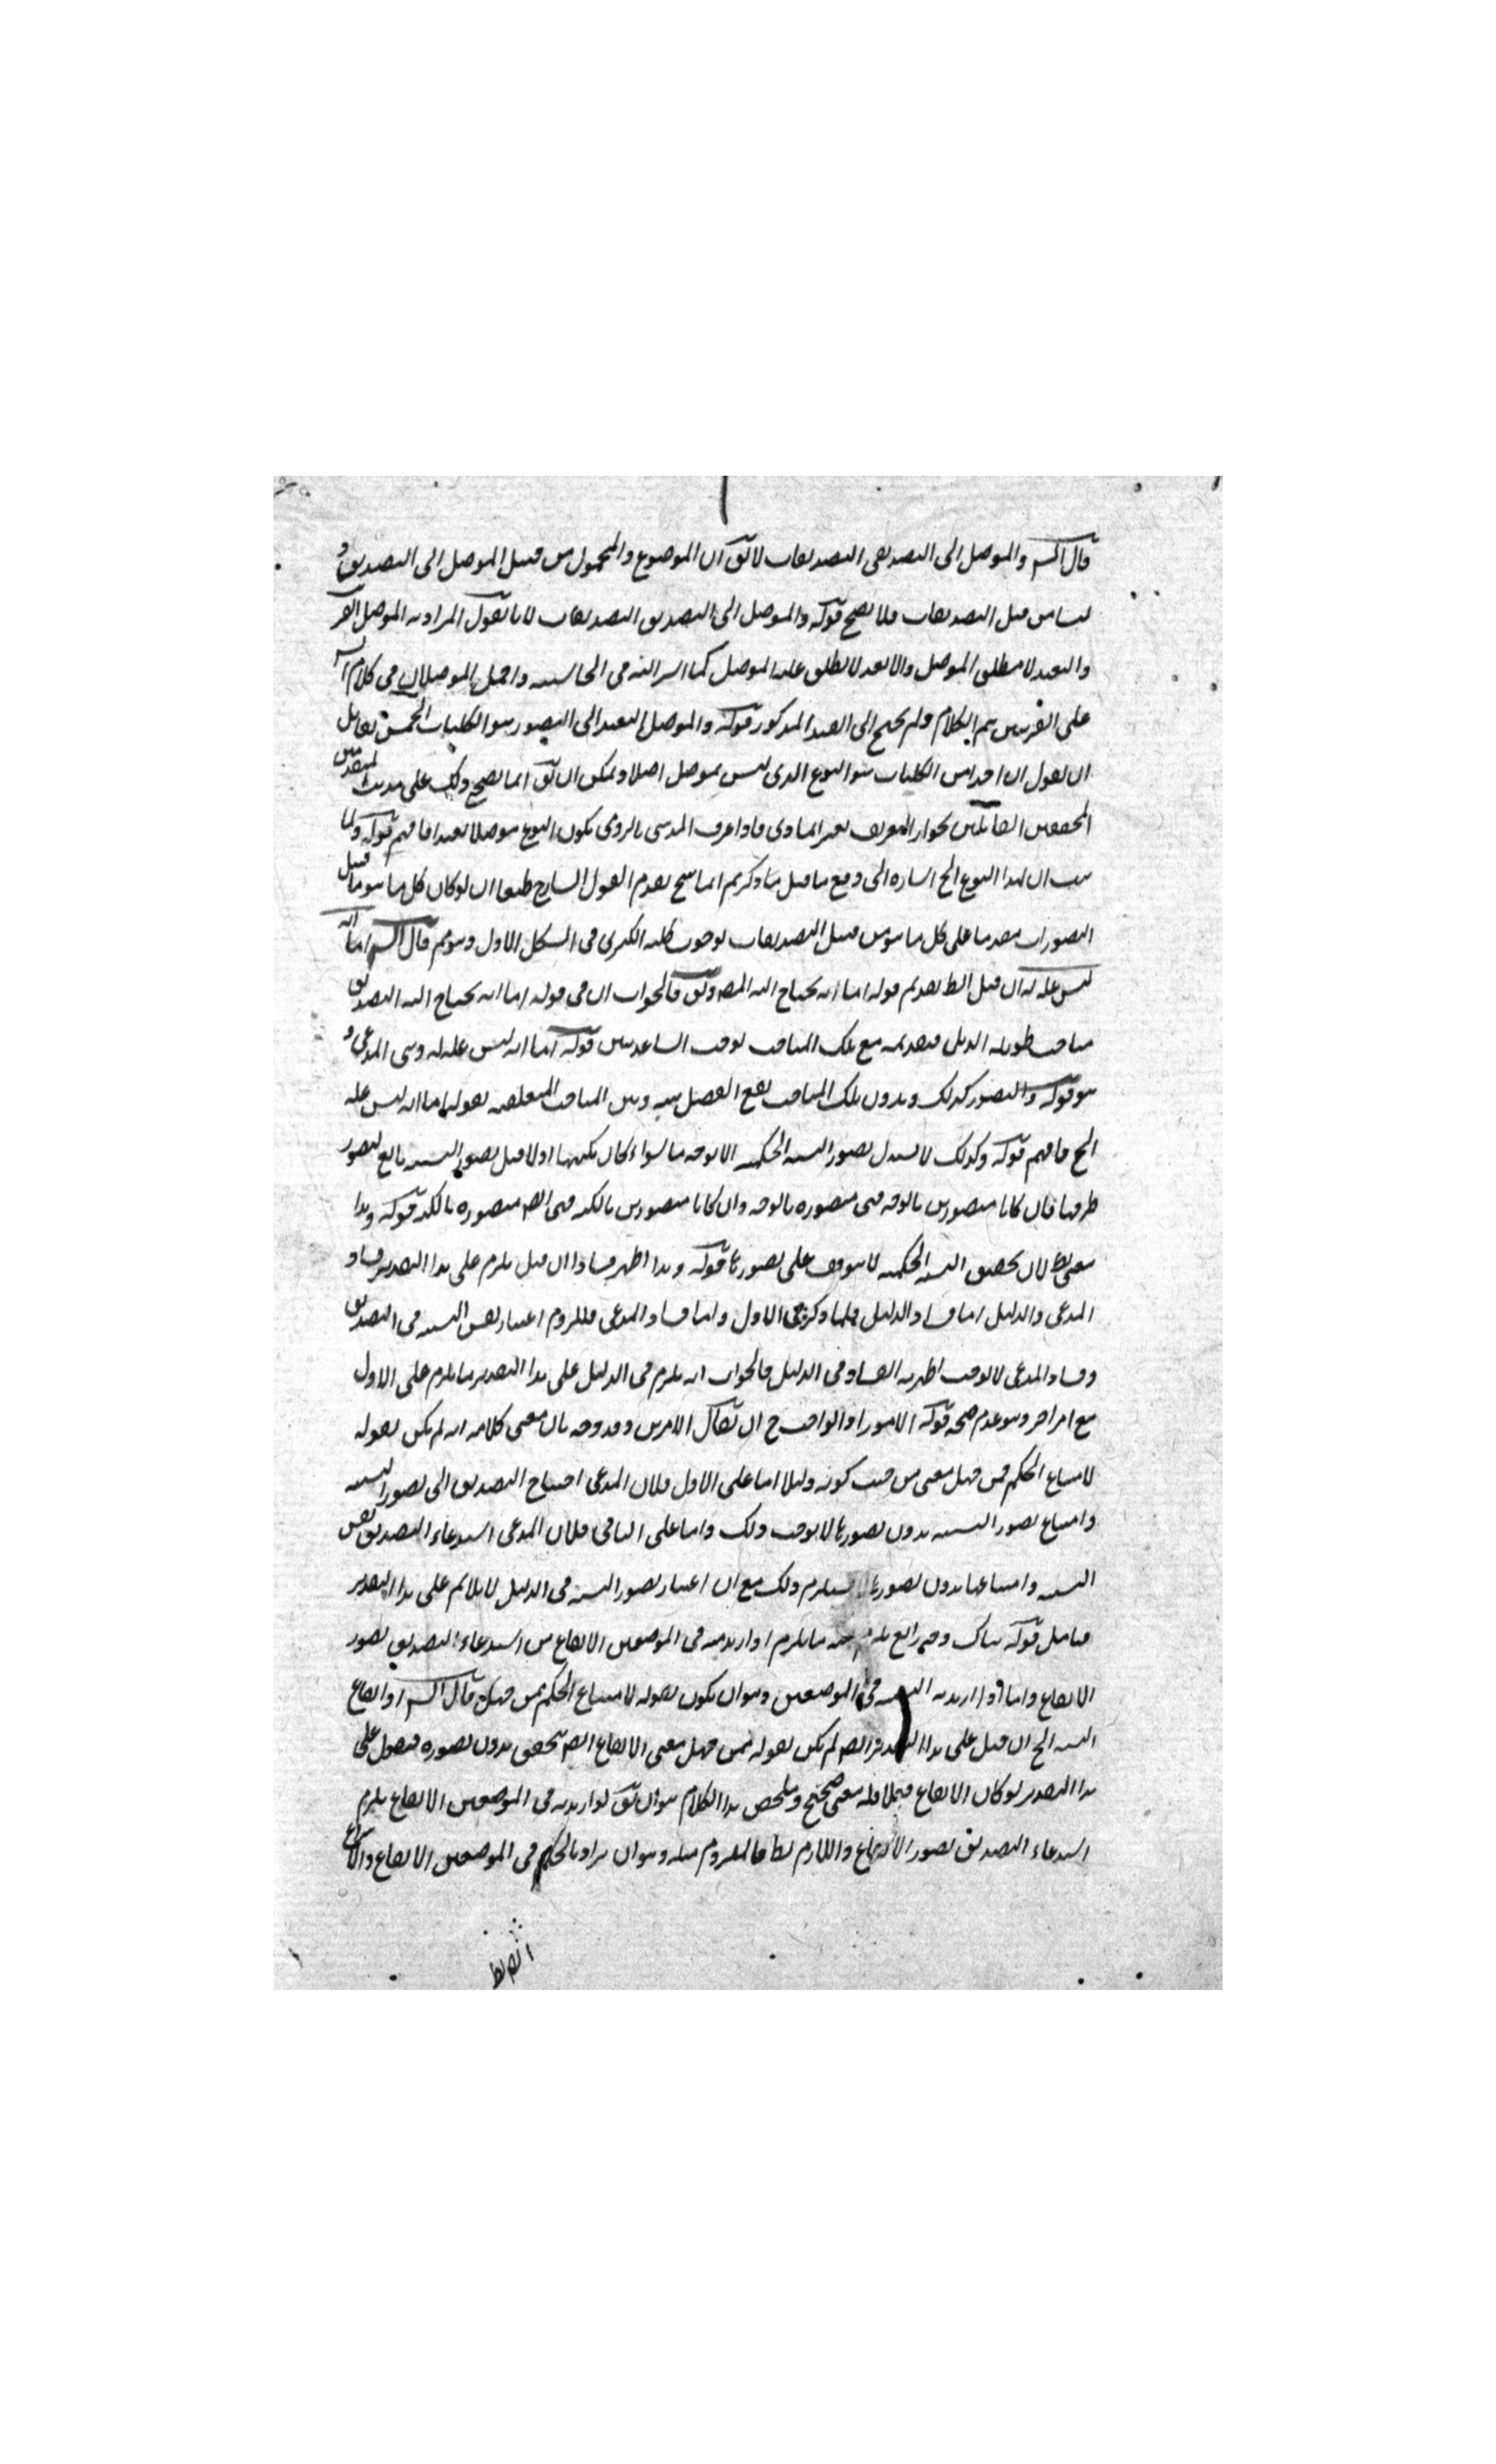 قال الش والموصل الى التصديق التصديقات لا يق ان الموضوع والمحمول من قبيل الموصل الى التصديق و
ليسا من قبيل التصديقات فلا يصح قوله والموصل الى التصديق التصديقات لانا نقول المراد به الموصل القر
والبعيد لا مطلق الموصل والابعد لا يطلق عليه الموصل كما اشر اليه فى الحاشيه الموصلان فى كلام الش
على القريبين تم الكلام ولم يحتج الى القيد المذكور قوله والموصل البعيد الى التصور هو الكليات الخمس لقائل
ان يقول ان احد من الكليات هو النوع الذى ليس بموصل اصلا ويمكن ان يق انما يصح ذلك على مذهب المتقدمين
المحققين القائلين بجواز التعريف بغير المساوى فاذا عرف يكون النوع موصلا بعيدا فافهم قوله ولما
ان لهذا النوع الخ اشاره الى دفع ما قيل ما ذكرتم انما ينتج تقدم القول الشارح طبعا ان لو كان كل ما هو من قبيل
التصورات مقدما على كل ما هو من قبيل التصديقات لوجوب كليه الكبرى فى الشكل الاول وهو مم قال الش اما انه
ليس عله له ان قيل الظ تقديم قوله اما انه يحتاج اليه المص فالجواب ان فى قوله اما انه يحتاج اليه التصديق
مباحث طويله الذيل فتقديمه مع تلك المباحث يوجب التباعد بين قوله اما انه ليس عله له وبين المدعى و
هو قوله والتصور كذلك وبدون تلك المباحث يقع الفصل بينه وبين المباحث المتعلقه بقوله اما انه ليس عله
الخ فافهم قوله وكذلك لا يستدل تصور النسبه الحكميه الا بوجه ما سواء كان بكنهها اولا قيل تصور النسبه تابع لتصور
طرفيها فان كانا متصورين بالوجه فهى متصوره بالوجه وان كانا متصورين بالكنه فهى ايض متصوره بالكنه قوله وهذا
معنى لان تحقيق النسبه الحكميه لا يتوقف على تصورها قوله وهذا اظهر فسادا ان قيل يلزم على هذا التقدير فساد
المدعى والدليل اما فساد الدليل فلما ذكر فى الاول واما فساد المدعى فللزوم اعتبار نفس النسبه فى التصديق
وفساد المدعى لا يوجب اظهريه الفساد فى الدليل فالجواب انه يلزم فى الدليل على هذا التقدير ما يلزم على الاول
مع امر اخر وهو عدم صحه قوله الامور اذ الواجب ح ان يقال الامرين وقد وجه بان معنى كلامه انه لم يكن لقوله
لامتناع الحكم ممن جهل معنى من حيث كونه دليلا اما على الاول فلان المدعى احتياج التصديق الى تصور النسبه
وامتناع تصور النسبه بدون تصورها لا يوجب ذلك واما على الثانى فلان المدعى استدعاء التصديق نفس
النسبه وامتناعها بدون تصورها لا يستلزم ذلك مع ان اعتبار تصور النسبه فى الدليل لا يلائم على هذا التقدير
فتامل قوله هناك وجه رابع يلزم منه ما يلزم اذا اريد به فى الموضعين الايقاع من استدعاء التصديق تصور
الايقاع واما اذا اريد به النسبه فى الموضعين وهو ان يكون لقوله لامتناع الحكم ممن جهل قال الش او ايقاع
النسبه الخ ان قيل على هذا التقدير ايض لم يكن لقوله ممن جهل معنى الايقاع ايض يتحقق بدون تصوره فنقول على
هذا التقدير لو كان الايقاع فعلا فله معنى صحيح وملخص هذا الكلام هو ان يق لو اريد به فى الموضعين الايقاع يلزم
استدعاء التصديق تصور الايقاع واللازم بط فالملزوم مثله وهو ان يراد بالحكم فى الموضعين الايقاع والانتزاع
ايض بط